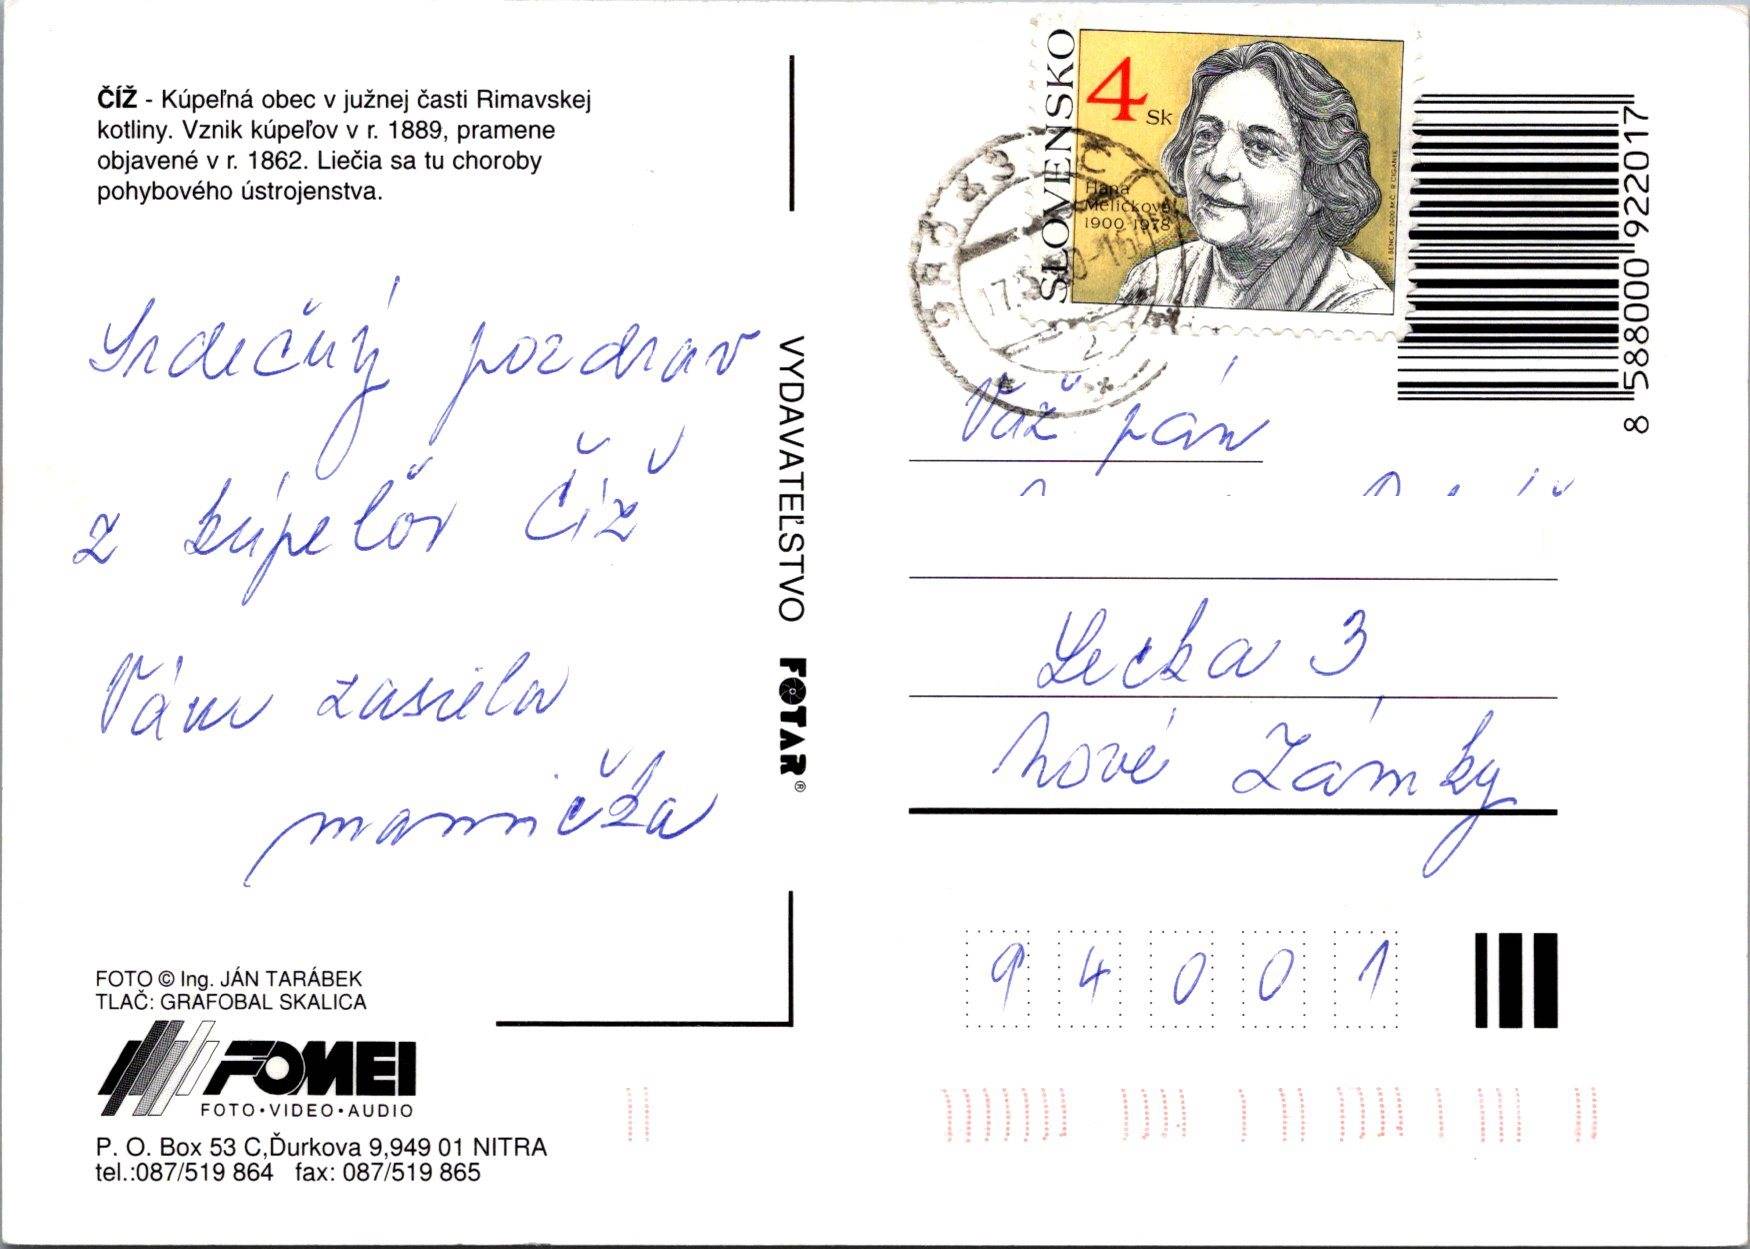 ČÍŽ - Kúpeľná obec v južnej časti Rimavskej
kotliny. Vznik kúpeľov v r. 1889, pramene
objavené v r. 1862. Liečia sa tu choroby
pohybového ústrojenstva.
Srdečný pozdrav
z kúpeľov Číž
Vám zasiela
mamička
FOTO © Ing. JÁN TARÁBEK
TLAČ: GRAFOBAL SKALICA
FOMEI
FOTO•VIDEO•AUDIO
P. O. Box 53 C,Ďurkova 9,949 01 NITRA
tel.:087/519 864 fax: 087/519 865
VYDAVATEĽSTVO FOTAR®
SLOVENSKO
4 Sk
Hana
Meličková
1900 1978
8 588000 922017
Váž pán
Lecka 3
Nové Zámky
94001